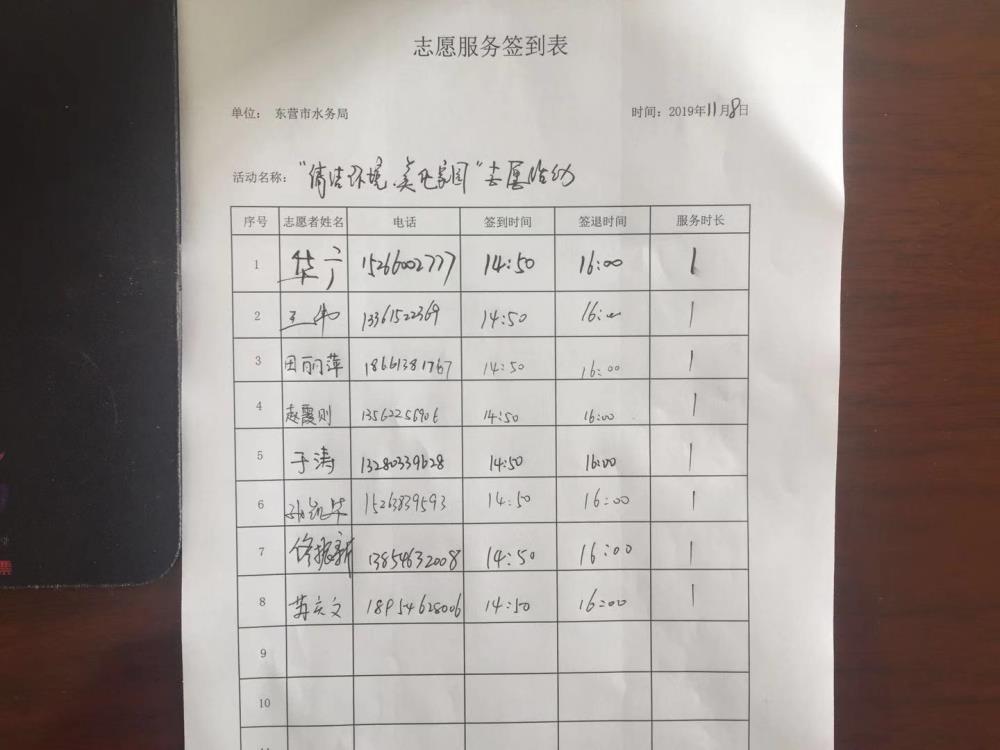 志愿服务签到表
单位： 东营市水务局 时间：2019年11月8日
活动名称："清洁环境、美化家园"志愿活动
序号 志愿者姓名 电话 签到时间 签退时间 服务时长
1 华广 15266002777 14:50 16:00 1
2 王 13361522369 14:50 16:00 1
3 田丽萍 18661381767 14:50 16:00 1
4 赵霞则 13562256906 14:50 16:00 1
5 于涛 13280339628 14:50 16:00 1
6 孙凯华 15263839593 14:50 16:00 1
7 佟振新 13854632008 14:50 16:00 1
8 苏庆文 18954628006 14:50 16:00 1
9
10